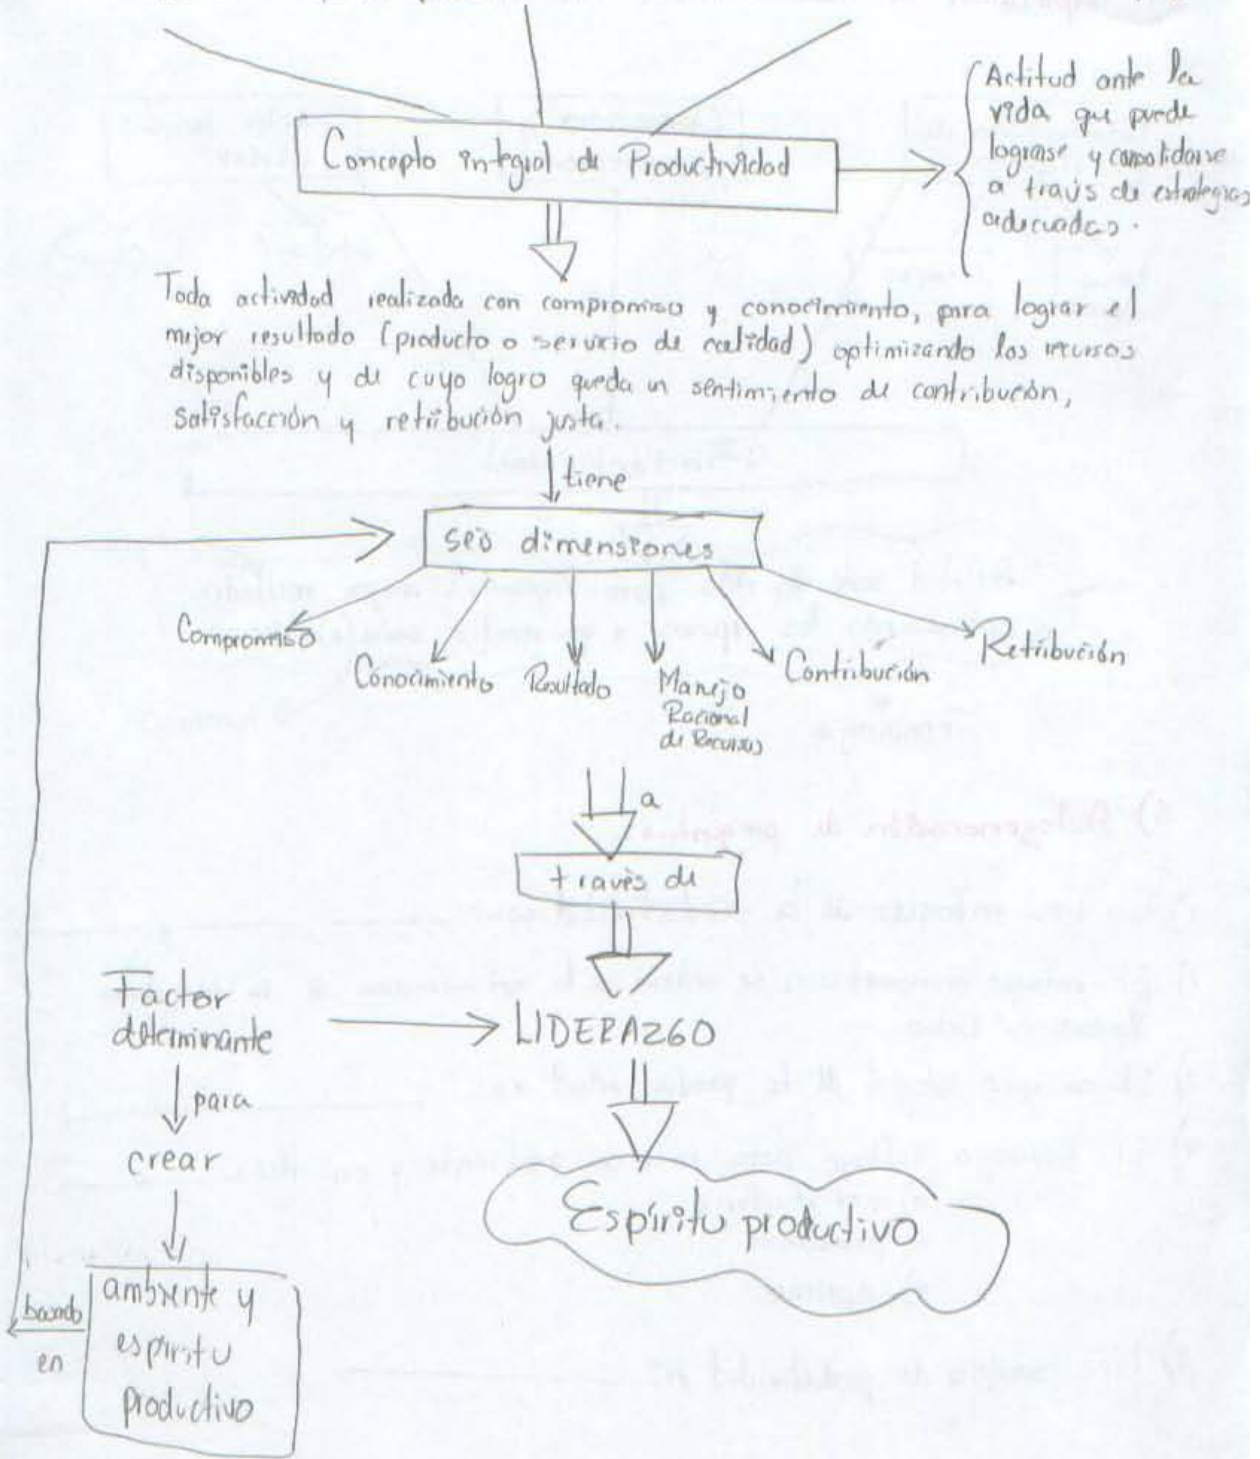 Concepto integral de Productividad
Actitud ante la
vida que puede
lograrse y consolidarse
a través de estrategias
adecuadas.
Toda actividad realizada con compromiso y conocimiento, para lograr el
mejor resultado (producto o servicio de calidad) optimizando los recursos
disponibles y de cuyo logro queda un sentimiento de contribución,
satisfacción y retribución justa.
tiene
seis dimensiones
Compromiso
Conocimiento
Resultado
Manejo
Racional
de Recursos
Contribución
Retribución
a
través de
Factor
determinante
LIDERAZGO
para
crear
Espíritu productivo
ambiente y
espíritu
productivo
basando
en